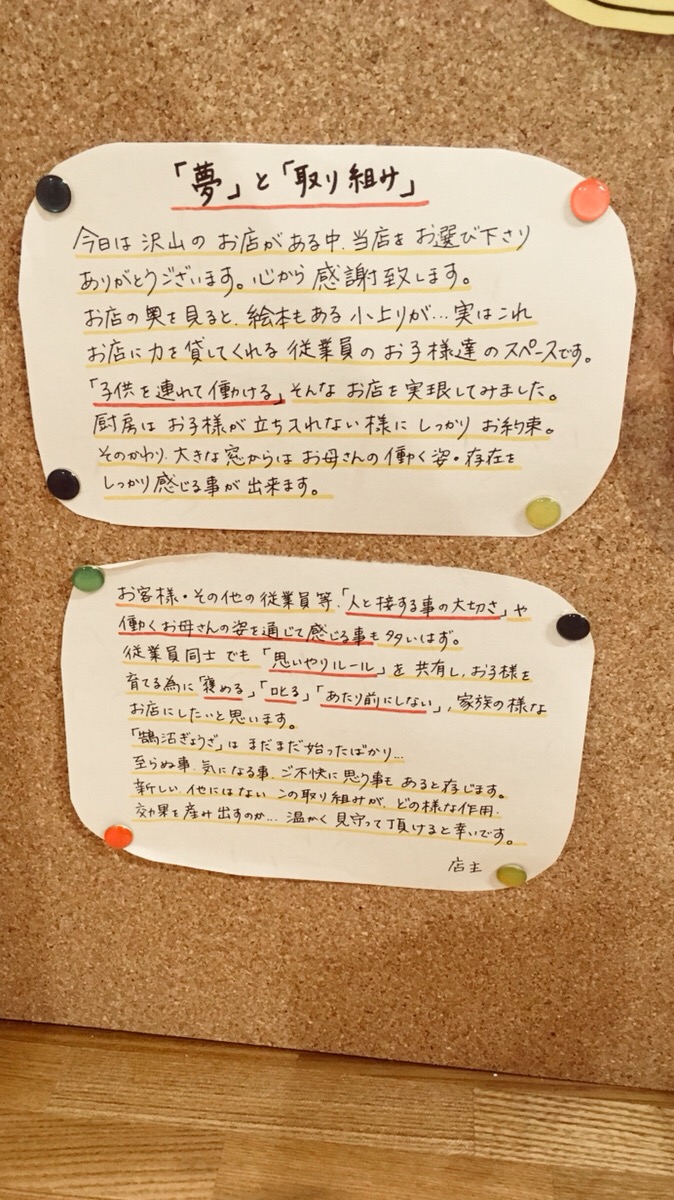 「夢」と「取り組け」
今日は沢山のお店がある中、当店をお選び下さり
ありがとうございます。心から感謝致します。
お店の奥を見ると、絵本もある小上りが…実はこれ
お店に力を貸してくれる従業員のお子様達のスペースです。
「子供を連れて働ける」そんなお店を実現してみました。
厨房はお子様が立ち入れない様にしっかりお約束。
そのかわり、大きな窓からはお母さんの働く姿・存在を
しっかり感じる事が出来ます。
お客様・その他の従業員等、「人と接する事の大切さ」や
働くお母さんの姿を通じて感じる事も多いはず。
従業員同士でも「思いやりルール」を共有し、お子様を
育てる為に「褒める」「叱る」「あたり前にしない」、家族の様な
お店にしたいと思います。
「鵠沼ぎょうざ」はまだまだ始ったばかり…
至らぬ事、気になる事、ご不快に思う事もあると存じます。
新しい他にはないこの取り組みが、どの様な作用、
効果を産み出すのか…温かく見守って頂けると幸いです。
店主